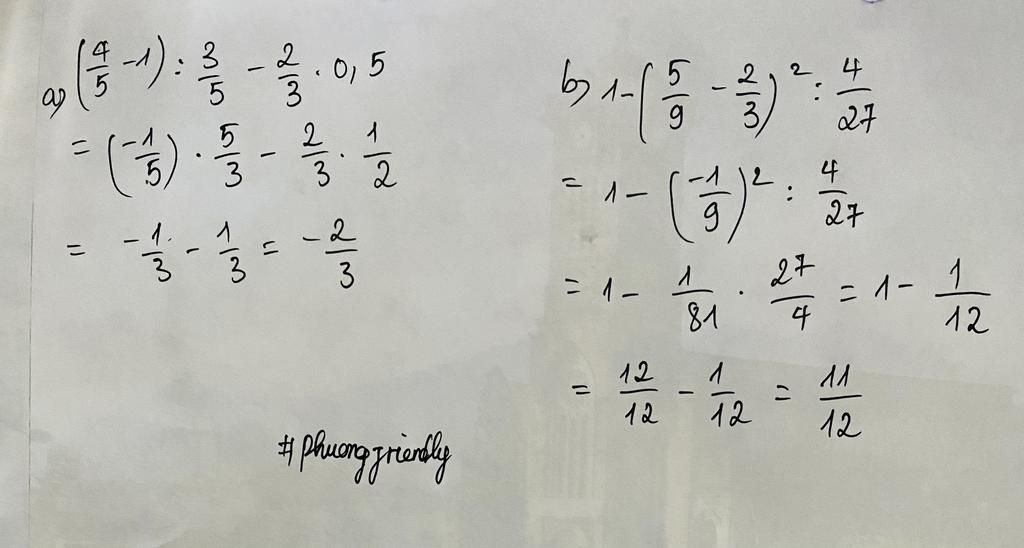 a) (4/5 -1) : 3/5 - 2/3 . 0,5
= (-1/5) . 5/3 - 2/3 . 1/2
= -1/3 - 1/3 = -2/3
b) 1-(5/9 - 2/3)² : 4/27
= 1-(-1/9)² : 4/27
= 1- 1/81 . 27/4 = 1- 1/12
= 12/12 - 1/12 = 11/12
#phuongfriendly